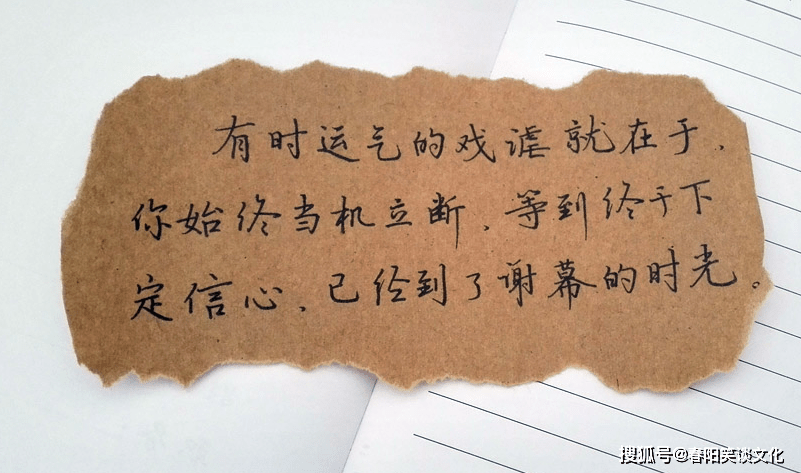 有时运气的戏谑就在于，
你始终当机立断，等到终于下
定信心，已经到了谢幕的时光。
搜狐号@春阳笑谈文化